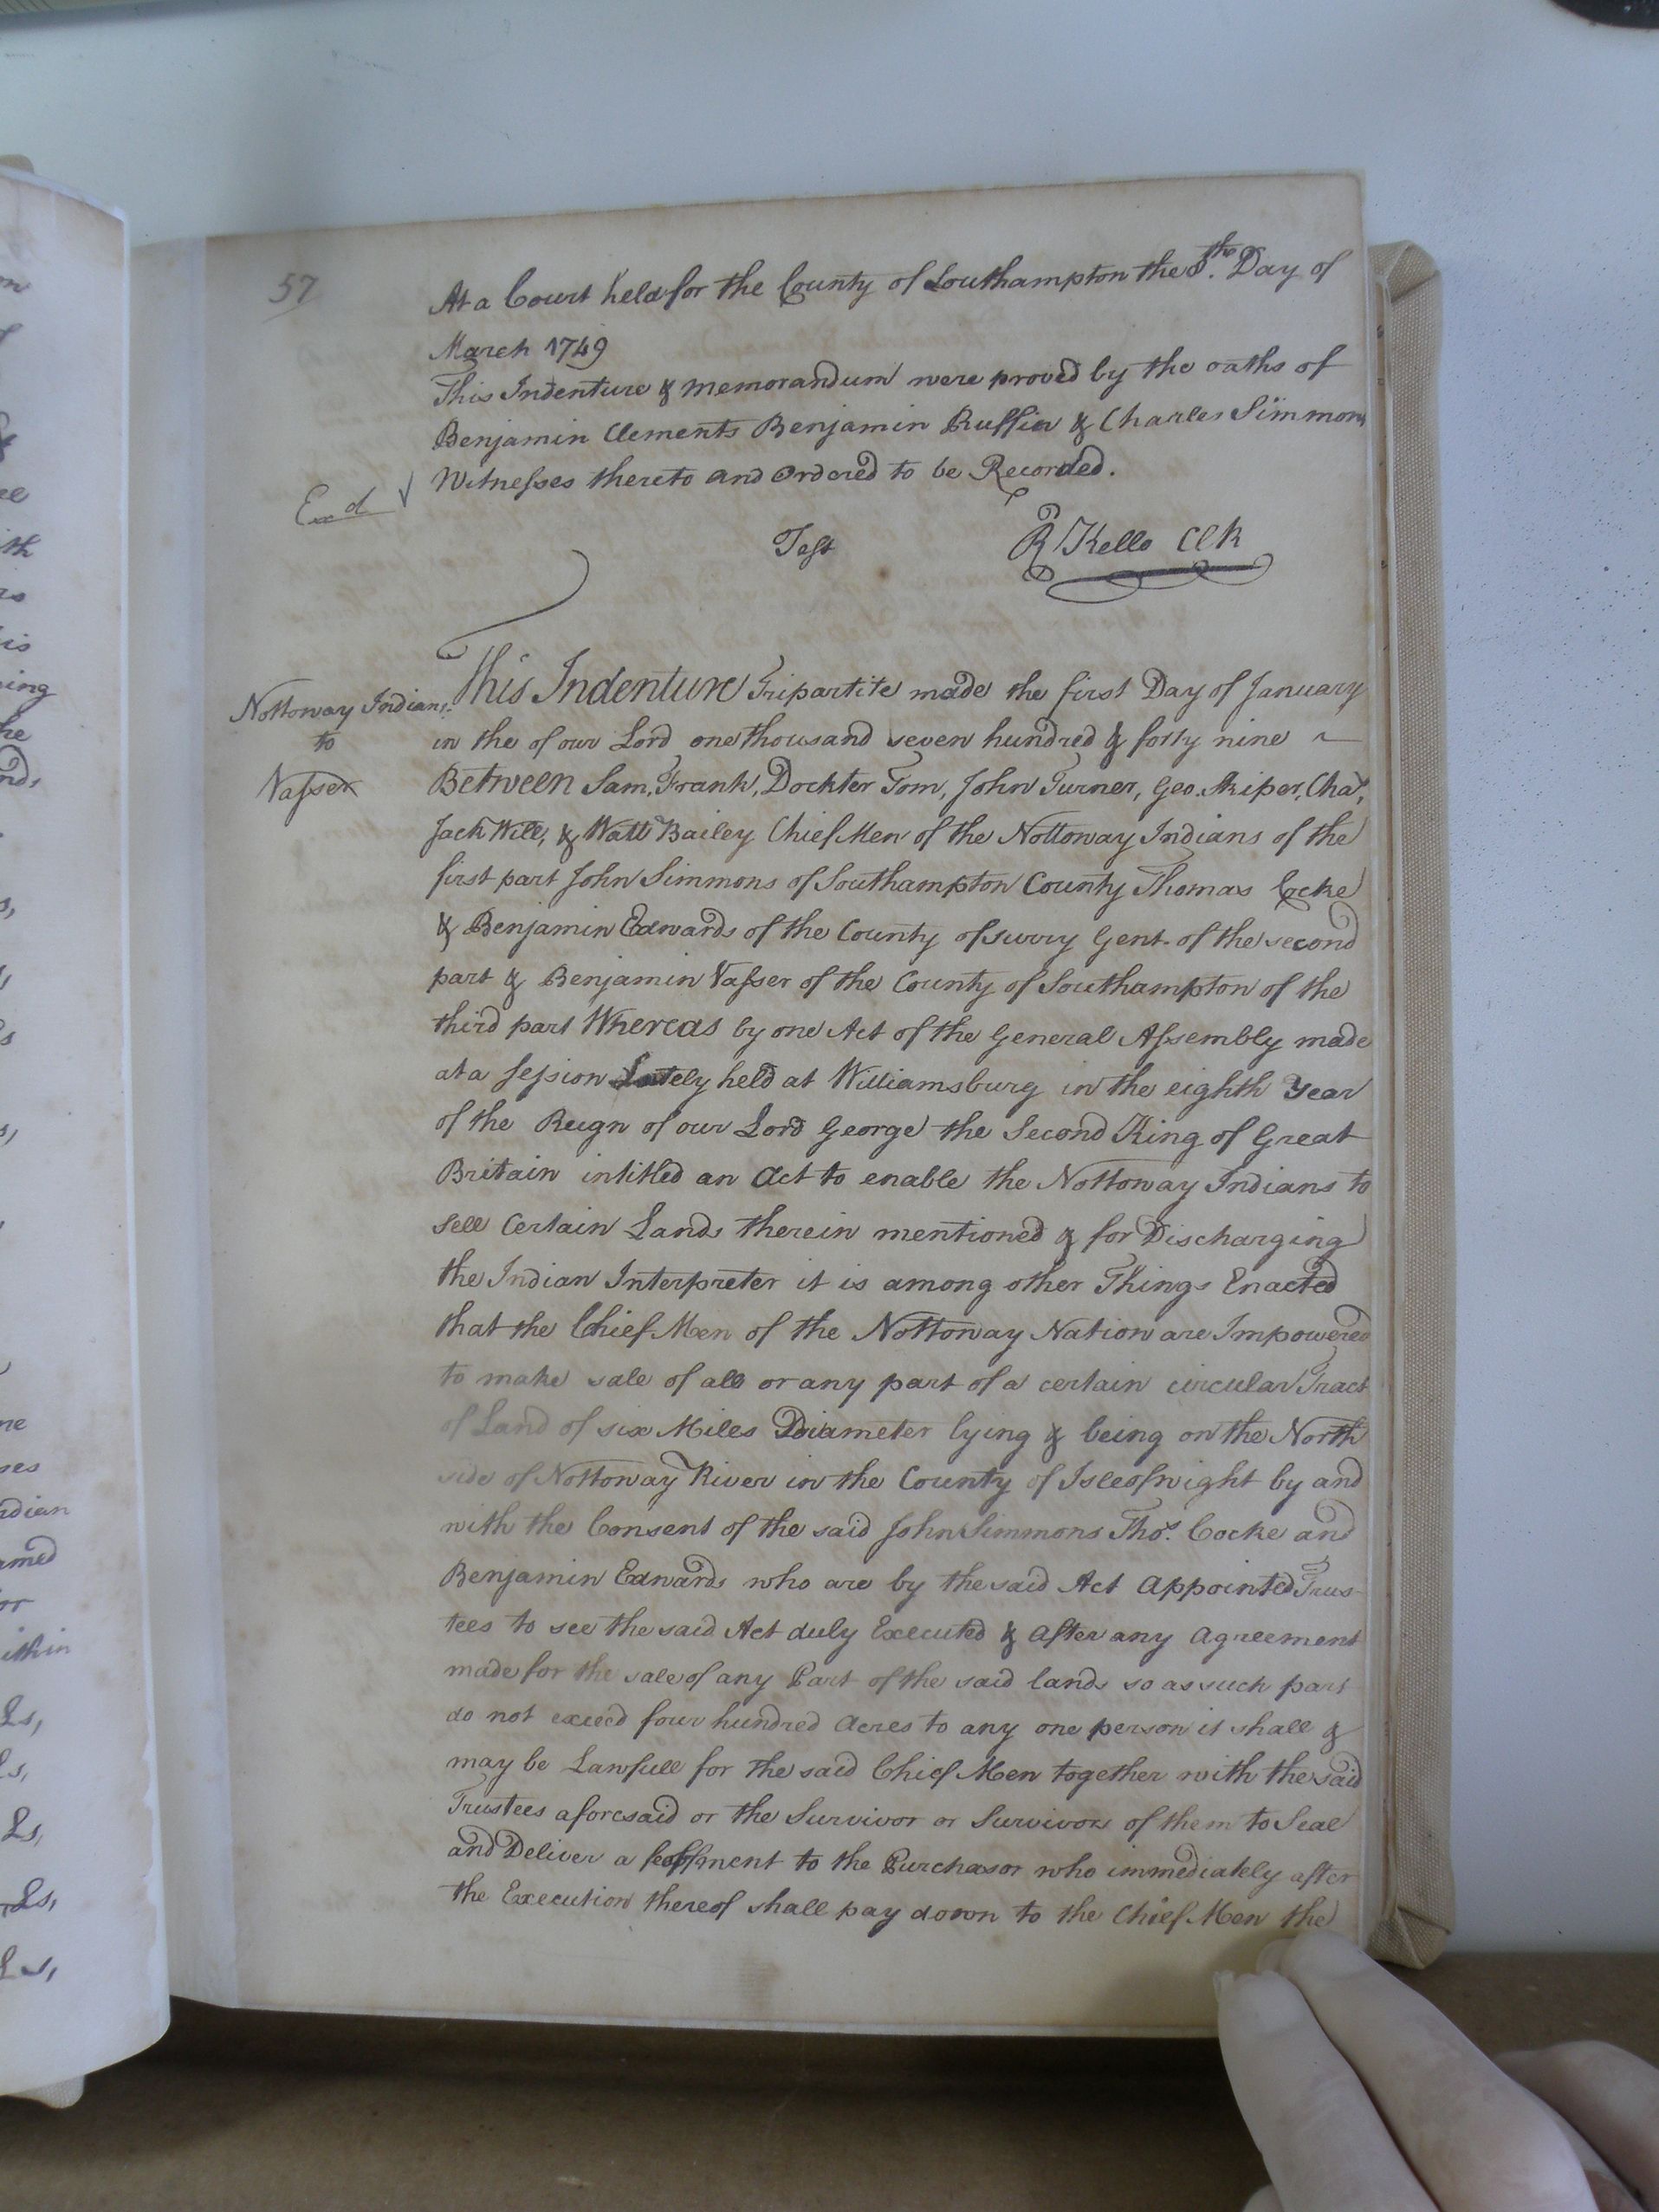 57
At a Court held for the County of Southampton the 8.th Day of
March 1749
This Indenture & memorandum were proved by the oaths of
Benjamin Clements Benjamin Ruffin & Charles Simmons
Witnesses thereto and Ordered to be Recorded.
Exd
Test R Kello ClK
Nottoway Indians
to
Vasser
This Indenture Tripartite made the first Day of January
in the of our Lord one thousand seven hundred & forty nine
Between Sam, Frank, Dockter Tom, John Turner, Geo. Skiper, Chas,
Jack Will, & Watt Bailey Chief Men of the Nottoway Indians of the
first part John Simmons of Southampton County Thomas Cocke
& Benjamin Edwards of the County of surry Gent. of the second
part & Benjamin Vasser of the County of Southampton of the
third part Whereas by one Act of the General Assembly made
at a session Lately held at Williamsburg in the eighth Year
of the Reign of our Lord George the Second King of Great
Britain intitled an Act to enable the Nottoway Indians to
sell Certain Lands therein mentioned & for Discharging
the Indian Interpreter it is among other Things Enacted
that the Chief Men of the Nottoway Nation are Impowered
to make sale of all or any part of a certain circular Tract
of Land of six Miles Diameter lying & being on the North
side of Nottoway River in the County of Isleofwight by and
with the Consent of the said John Simmons Thos. Cocke and
Benjamin Edwards who are by the said Act Appointed Trus-
tees to see the said Act duly Executed & after any agreement
made for the sale of any Part of the said lands so as such part
do not exceed four hundred Acres to any one person it shall &
may be Lawfull for the said Chief Men together with the said
Trustees aforesaid or the Survivor or Survivors of them to Seal
and Deliver a feoffment to the Purchasor who immediately after
the Execution thereof shall pay down to the Chief Men the